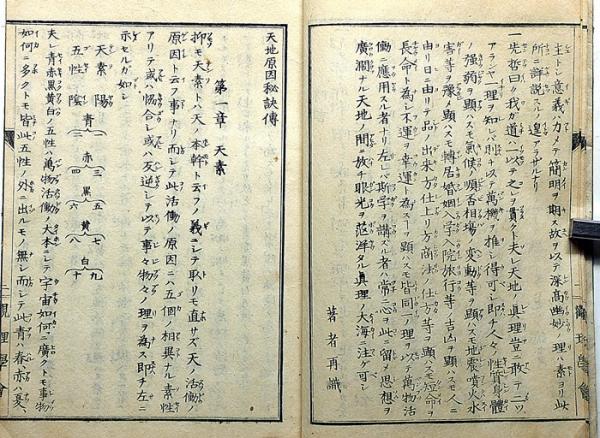 主トシ意義ハ力メテ簡明ヲ期ス故ヲ以テ深高幽妙ノ理ハ素ヨリ此
所ニ詳説スルノ遑アラザルナリ
一先哲曰ク我ガ道ハ一以テ之レヲ貫クト夫レ天地ノ眞理豈ニ敢テ二ツ
アランヤ一理ヲ知レバ則チ以テ萬機ヲ推シ得可シ即チ人々ノ性質身體
ノ強弱ヲ顯ハスモ氣候ノ順否相場ノ變動等ヲ顯ハスモ地震噴火水
害等ヲ豫メ顯ハスモ轉居婚姻入学入院旅行等ノ吉凶ヲ顯ハスモ人ニ
由リ日ニ由リテ品ノ出来方仕上リ方商法ノ仕方等ヲ顯ハスモ短命ヲ
長命ト為シ不運ヲ幸運ト為スヿヲ顯ハスモ皆同一ノ理ヲ以テ萬物活
働ニ應用スル者ナリ左レバ斯学ヲ講ズル者ハ常ニ心ヲ此ニ留メ思想ヲ
廣濶ナル天地ノ間ニ放チ眼光ヲ茫洋タル眞理ノ大海ニ注グ可シ
著者再識
天地原因秘訣傳
第一章 天素
抑モ天素トハ天ノ本幹ト云フノ義ニシテ取リモ直サズ天ノ活働ノ
原因ト云フ事ナリ而シテ此活働ノ原因ニハ五個ノ相異ナル素
アリテ或ハ恊合シ或ハ反逆シテ以テ事々物々ノ理ヲ為ス即チ左ニ
示セルガ如シ
天素 陽 青 一 赤 三 黒 五 黄 七 白 九
五性 陰 二 四 六 八 十
夫レ青赤黒黄白ノ五性ハ萬物活働ノ大本ニシテ宇宙如何ニ廣クトモ事物
如何ニ多クトモ皆此五性ノ外ニ出ルモノ無シ而シテ此青ハ春赤ハ夏
二 観理學會